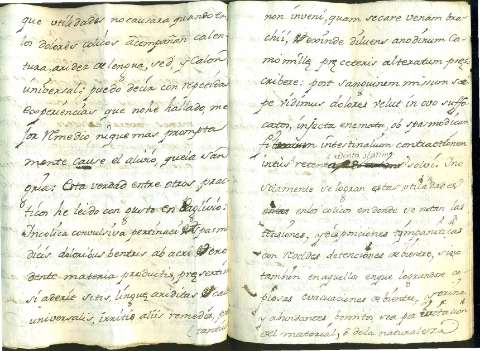 que utilidades no causara, quando en
los dolores colicos acompañan calen
tura, aridez de lengua, sed, y calor
universal: puedo decir con repetidas
experiencias, que no he hallado me
jor remedio ni que mas prompta
mente cause el alivio, que la san
gria: Esta verdad entre otros prac
ticos he leido con gusto en Baglivio:
In colica convulsiva, pertinaci spasmo
dicis doloribus ventris ab acri
dente materia productis, præsertim
si aderit sitis, linguæ ariditas calor
universalis, irritis aliis remediis, præ
non inveni, quam secare venam bra
chii, deinde diluens anodinum ca
momillæ præ ceteris alteratum præs
cribere: post sanguinem missum sæ
pe vidimus dolores velut in ovo suffo
catos, infecta enemata, ob spasmodicam
intestinalium contractionem
intus solvi. No
solamente se logran estas utilidades
en los colicos en donde se notan las
tensiones, y disposiciones tympaniticas
con reveldes detenciones de vientre, sino
tambien en aquellos en que lograndose co
piosas evacuaciones de vientre, y orina
y abundantes bomitos, sea por irritacion
del material, ó de la naturaleza